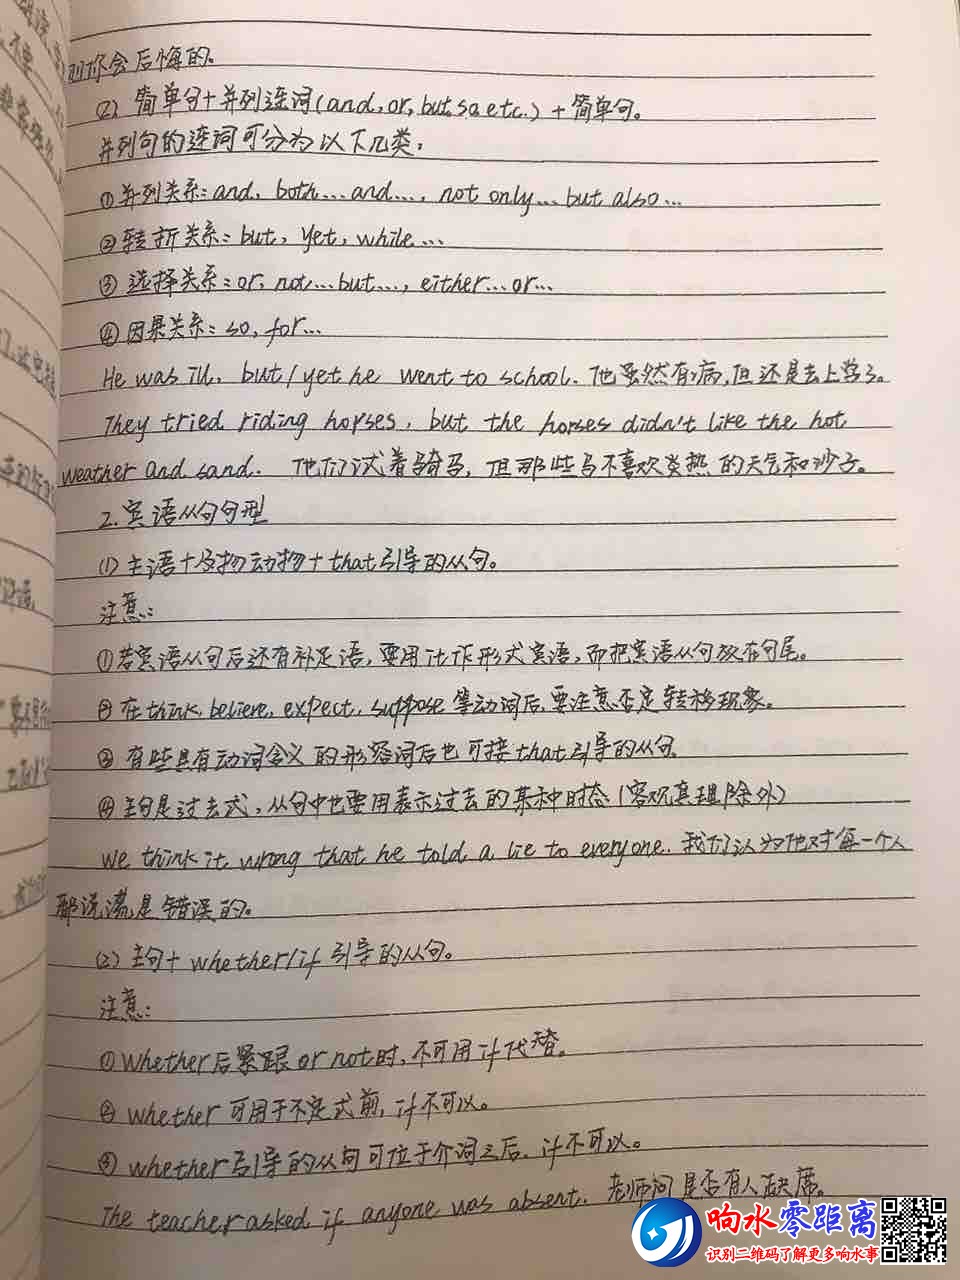 则你会后悔的。
(2) 简单句+并列连词(and, or, but, so etc.) + 简单句。
并列句的连词可分为以下几类:
①并列关系: and, both...and..., not only... but also...
②转折关系: but, yet, while...
③选择关系: or, not...but..., either...or...
④因果关系: so, for...
He was ill, but/yet he went to school. 他虽然有病,但还是去上学了。
They tried riding horses, but the horses didn't like the hot
weather and sand. 他们试着骑马,但那些马不喜欢炎热的天气和沙子。
2.宾语从句句型
(1)主语+及物动物+that引导的从句。
注意:
①若宾语从句后还有补足语,要用it作形式宾语,而把宾语从句放在句尾。
②在think, believe, expect, suppose等动词后,要注意否定转移现象。
③有些具有动词含义的形容词后也可接that引导的从句。
④主句是过去式,从句中也要用表示过去的某种时态(客观真理除外)
We think it wrong that he told a lie to everyone. 我们认为他对每一个人
都说谎是错误的。
(2)主句+ whether/if 引导的从句。
注意:
①whether后紧跟 or not时,不可用if代替。
②whether可用于不定式前,if不可以。
③whether引导的从句可位于介词之后,if不可以。
The teacher asked if anyone was absent. 老师问是否有人缺席。
响水零距离
识别二维码了解更多响水事